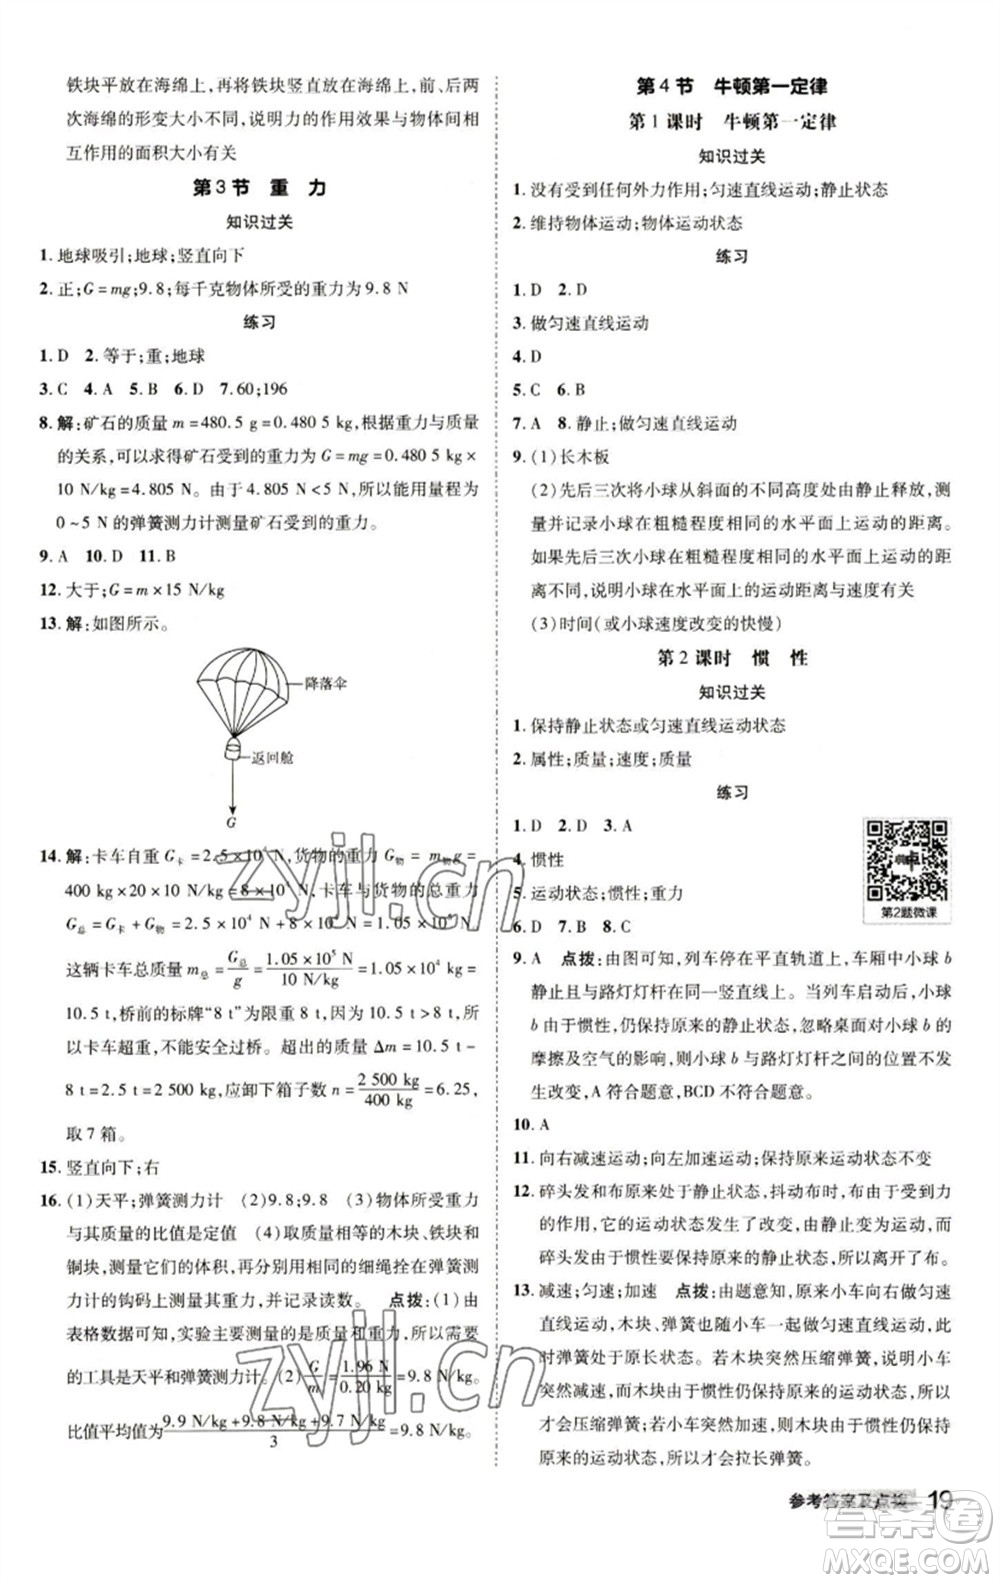 铁块平放在海绵上,再将铁块竖直放在海绵上,前、后两
次海绵的形变大小不同,说明力的作用效果与物体间相
互作用的面积大小有关
第3节 重 力
知识过关
1. 地球吸引;地球;竖直向下
2. 正;G=mg;9.8;每千克物体所受的重力为9.8 N
练习
1. D 2. 等于;重;地球
3. C 4. A 5. B 6. D 7. 60;196
8. 解:矿石的质量 m=480.5 g=0.480 5 kg,根据重力与质量
的关系,可以求得矿石受到的重力 G=mg=0.480 5 kg×
10 N/kg=4.805 N。由于 4.805 N<5 N,所以能用量程为
0~5 N的弹簧测力计测量矿石受到的重力。
9. A 10. D 11. B
12. 大于;G=m×15 N/kg
13. 解:如图所示。
降落伞
返回舱
G
14. 解:卡车自重 G卡=2.5×10⁴ N,货物的重力 G物=m物g=
400 kg×20×10 N/kg=8×10⁴ N,卡车与货物的总重力
G总=G卡+G物=2.5×10⁴ N+8×10⁴ N=1.05×10⁵ N,
这辆卡车总质量 m总=G总/g=1.05×10⁵ N/10 N/kg=1.05×10⁴ kg=
10.5 t,桥前的标牌“8 t”为限重 8 t,因为 10.5 t>8 t,所
以卡车超重,不能安全过桥。超出的质量 Δm=10.5 t-
8 t=2.5 t=2 500 kg,应卸下箱子数 n=2 500 kg/400 kg=6.25,
取 7 箱。
15. 竖直向下;右
16. (1)天平;弹簧测力计 (2)9.8;9.8 (3)物体所受重力
与其质量的比值是定值 (4)取质量相等的木块、铁块和
铜块,测量它们的体积,再分别用相同的细绳拴在弹簧测
力计的钩码上测量其重力,并记录读数。 点拨:(1)由
表格数据可知,实验主要测量的是物体的质量和重力,需要
的工具是天平和弹簧测力计。(2)G/m=1.96 N/0.20 kg=9.8 N/kg,
比值平均值为9.9 N/kg+9.8 N/kg+9.7 N/kg/3=9.8 N/kg。
第4节 牛顿第一定律
第1课时 牛顿第一定律
知识过关
1. 没有受到任何外力作用;匀速直线运动;静止状态
2. 维持物体运动;物体运动状态
练习
1. D 2. D
3. 做匀速直线运动
4. D
5. C 6. B
7. A 8. 静止;做匀速直线运动
9. (1)长木板
(2)先后三次将小球从斜面的不同高度处由静止释放,测
量并记录小球在粗糙程度相同的水平面上运动的距离。
如果先后三次小球在粗糙程度相同的水平面上运动的距
离不同,则说明小球在水平面上的运动距离与速度有关
(3)时间(或小球速度改变的快慢)
第2课时 惯 性
知识过关
1. 保持静止状态或匀速直线运动状态
2. 属性;质量;速度;质量
练习
1. D 2. D 3. A
4. 惯性
5. 运动状态;惯性;重力
6. D 7. B 8. C
第2题微课
9. A 点拨:由图可知,列车停在平直轨道上,车厢中小球 b
静止且与路灯灯杆在同一竖直线上。当列车启动后,小球
b 由于惯性,仍保持原来的静止状态,忽略桌面对小球 b 的
摩擦及空气的影响,则小球 b 与路灯灯杆之间的位置不发
生改变,A 符合题意,BCD 不符合题意。
10. A
11. 向右减速运动;向左加速运动;保持原来运动状态不变
12. 碎头发和布原来处于静止状态,抖动布时,布受到力
的作用,它的运动状态发生了改变,由静止变为运动,
碎头发由于惯性要保持原来的静止状态,所以离开了布。
13. 减速;匀速;加速 点拨:由题意知,原来小车向右做匀速
直线运动,木块、弹簧也随小车一起做匀速直线运动,此
时弹簧处于原长状态。若木块突然压缩弹簧,说明小车
突然减速,而木块由于惯性保持原来的运动状态,所以
才会压缩弹簧;若小车突然加速,则木块由于惯性仍保持
原来的运动状态,所以才会拉长弹簧。
参考答案及点拨 19
zyjl.cn
zyjl.cn
答案圈
MXQE.COM